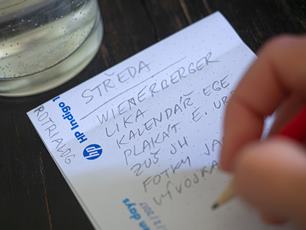 STŘEDA
WIENERBERGER
LIKA
KALENDÁŘ EGE
PLAKÁT E. UR
ZUŠ JH
FOTKY JA
VÝVOJKA
HP Indigo
hp
n days